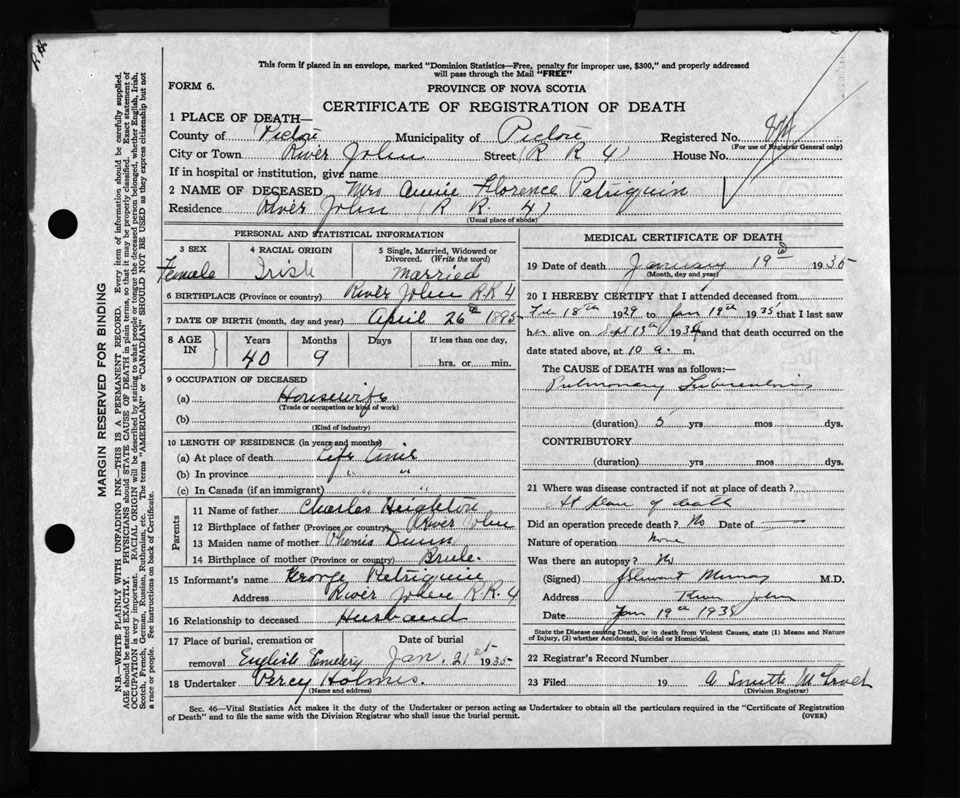 This form if placed in an envelope, marked "Dominion Statistics—Free, penalty for improper use, $300," and properly addressed
will pass through the Mail "FREE"
FORM 6.
PROVINCE OF NOVA SCOTIA
CERTIFICATE OF REGISTRATION OF DEATH
1 PLACE OF DEATH—
County of Pictou Municipality of Pictou Registered No.
(For use of Registrar General only)
City or Town River John Street (R R 4) House No.
If in hospital or institution, give name
2 NAME OF DECEASED Mrs Annie Florence Patriquin
Residence River John (R R. 4)
(Usual place of abode)
PERSONAL AND STATISTICAL INFORMATION
3 SEX 4 RACIAL ORIGIN 5 Single, Married, Widowed or
Divorced. (Write the word)
Female Irish Married
6 BIRTHPLACE (Province or country) River John R.R 4
7 DATE OF BIRTH (month, day and year) April 26th 1895
8 AGE IN Years Months Days If less than one day,
40 9 hrs. or min.
9 OCCUPATION OF DECEASED
(a) Housewife
(Trade or occupation or kind of work)
(b)
(Kind of industry)
10 LENGTH OF RESIDENCE (in years and months)
(a) At place of death Life time
(b) In province " "
(c) In Canada (if an immigrant) " "
Parents
11 Name of father Charles Heighton
12 Birthplace of father (Province or country) River John
13 Maiden name of mother Phemis Dunn
14 Birthplace of mother (Province or country) Brule.
15 Informant's name George Patriquin
Address River John R.R. 4
16 Relationship to deceased Husband
17 Place of burial, cremation or Date of burial
removal English Cemetery Jan. 21st 1935
18 Undertaker Percy Holmes.
(Name and address)
MEDICAL CERTIFICATE OF DEATH
19 Date of death January 19th 1935
(Month, day and year)
20 I HEREBY CERTIFY that I attended deceased from
Feb 18th 1929 to Jan 19th 1935 that I last saw
her alive on Sept 13th 1934 and that death occurred on the
date stated above, at 10 a. m.
The CAUSE of DEATH was as follows:—
Pulmonary Tuberculosis
(duration) 5 yrs mos dys.
CONTRIBUTORY
(duration) yrs. mos. dys.
21 Where was disease contracted if not at place of death?
At place of death
Did an operation precede death? No Date of —
Nature of operation None
Was there an autopsy? No
(Signed) Murray M.D.
Address River John
Date Jan 19th 1935
State the Disease causing Death, or in death from Violent Causes, state (1) Means and Nature
of Injury, (2) whether Accidental, Suicidal or Homicidal.
22 Registrar's Record Number
23 Filed 19 A Smith
(Division Registrar)
Sec. 46—Vital Statistics Act makes it the duty of the Undertaker or person acting as Undertaker to obtain all the particulars required in the "Certificate of Registration
of Death" and to file the same with the Division Registrar who shall issue the burial permit.
(OVER)
MARGIN RESERVED FOR BINDING
N.B.—WRITE PLAINLY WITH UNFADING INK—THIS IS A PERMANENT RECORD. Every item of information should be carefully supplied.
AGE should be stated EXACTLY. PHYSICIANS should STATE CAUSE OF DEATH in plain terms, so that it may be properly classified. Exact statement of
OCCUPATION is very important. RACIAL ORIGIN will be described by stating to what people or tongue the deceased person belonged, whether English, Irish,
Scotch, French, German, Russian, Ruthenian, etc. The terms "AMERICAN" or "CANADIAN" SHOULD NOT BE USED as they express citizenship but not
a race or people. See instructions on back of Certificate.